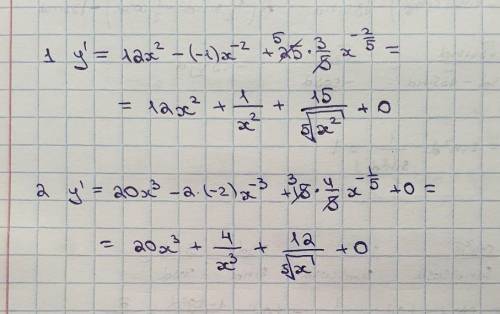 1 y' = 12x² - (-1)x⁻² + ⁵25 · 3/5 x^(-2/5) =
= 12x² + 1/x² + 15/⁵√x² + 0
2 y' = 20x³ - 2·(-2)x⁻³ + ³15 · 4/5 x^(-1/5) + 0 =
= 20x³ + 4/x³ + 12/⁵√x + 0